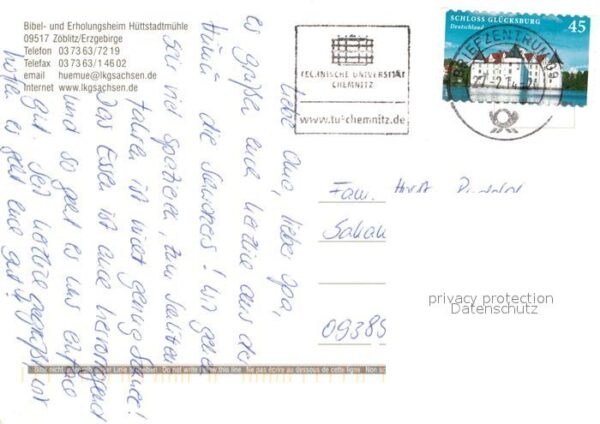 Bibel- und Erholungsheim Hüttstadtmühle
09517 Zöblitz/Erzgebirge
Telefon 03 73 63/72 19
Telefax 03 73 63/1 46 02
email huemue@lkgsachsen.de
Internet www.lkgsachsen.de
TECHNISCHE UNIVERSITÄT
CHEMNITZ
www.tu-chemnitz.de
SCHLOSS GLÜCKSBURG
Deutschland
45
BRIEFZENTRUM 09
Liebe Oma, liebe Opa,
es grüßen euch herzlich aus der
Hümü die Schwarzes! Wir gehen
sehr viel spazieren, zum Schlitten
fahren ist nicht genug Schnee!
Das Essen ist auch hervorragend
und so geht es uns einfach
gut. Seid herzlich gegrüßt, wir
hoffen es geht euch gut!
Fam. Horst
09385
privacy protection
Datenschutz
Bitte nicht unterhalb dieser Linie schreiben Do not write below this line Ne pas écrire au dessous de cette ligne Non sc